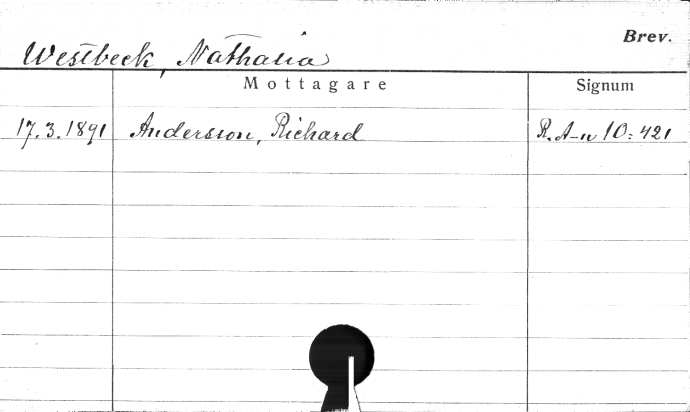 Brev.
Westbeck, Nathalia
Mottagare Signum
17.3.1891 Andersson, Richard R. A-n 10: 421